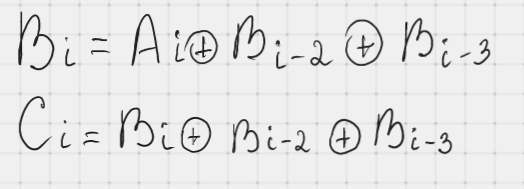 Bi = Ai ⊕ Bi-2 ⊕ Bi-3
Ci = Bi ⊕ Bi-2 ⊕ Bi-3